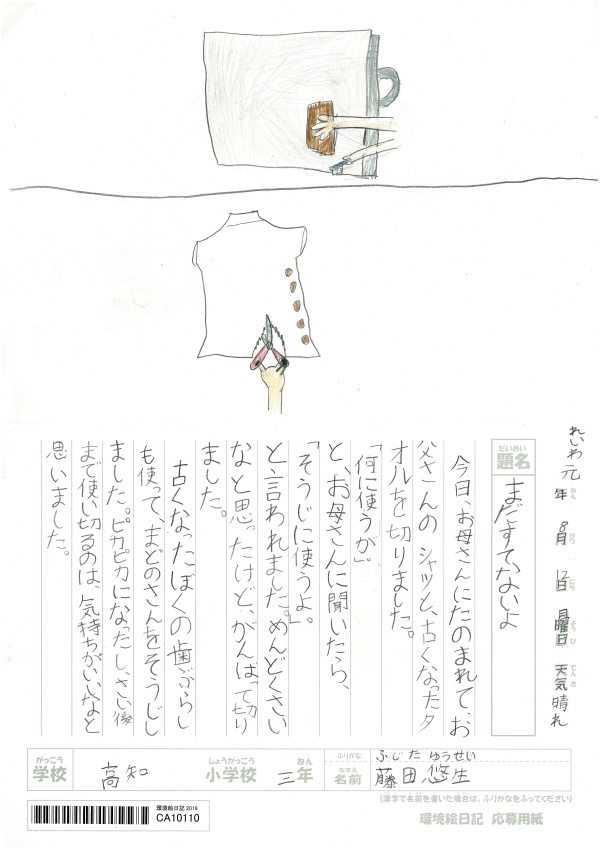 れいわ元年ねん8月がつ12日にち月曜日ようび天気てんき晴れ
だいめい
題名
まだすてないよ
今日、お母さんにたのまれて、お
父さんのシャツと、古くなったタ
オルを切りました。
「何に使うが」。
と、お母さんに聞いたら、
「そうじに使うよ。
と言われました。めんどくさい
なと思ったけど、がんばって切り
ました。
古くなったぼくの歯ぶらし
も使って、まどのさんをそうじし
ました。ピカピカになったし、さい後
まで使い切るのは、気持ちがいいなと
思いました。
がっこう
学校
高知
しょうがっこう
小学校
三
ねん
年
ふりがな
ふじたゆうせい
なまえ
名前
藤田悠生
(漢字で名前を書いた場合は、ふりがなをふってください)
環境絵日記 2019
CA10110
環境絵日記 応募用紙